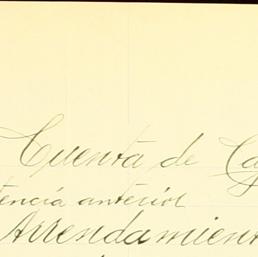 Cuenta de Ca
tencia anterior
Arrendamient